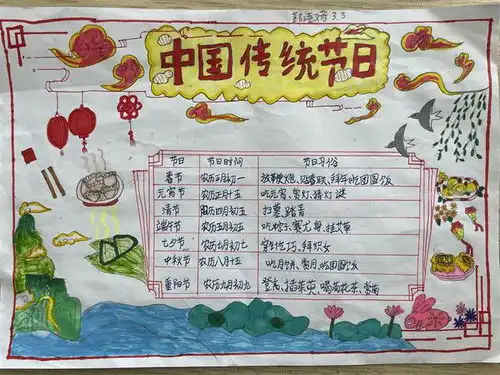 3.3
中国传统节日
节日 节日时间 节日习俗
春节 农历正月初一 放鞭炮、贴春联、拜年吃团圆饭
元宵节 农历正月十五 吃元宵、赏灯、猜灯谜
清节 农历四月初五 扫墓、踏青
端午节 农历五月初五 吃粽子、赛龙舟、挂艾草
七夕节 农历七月初七 穿针乞巧、拜织女
中秋节 农历八月十五 吃月饼、赏月、吃团圆饭
重阳节 农历九月初九 登高、插茱萸、喝菊花茶、赏菊